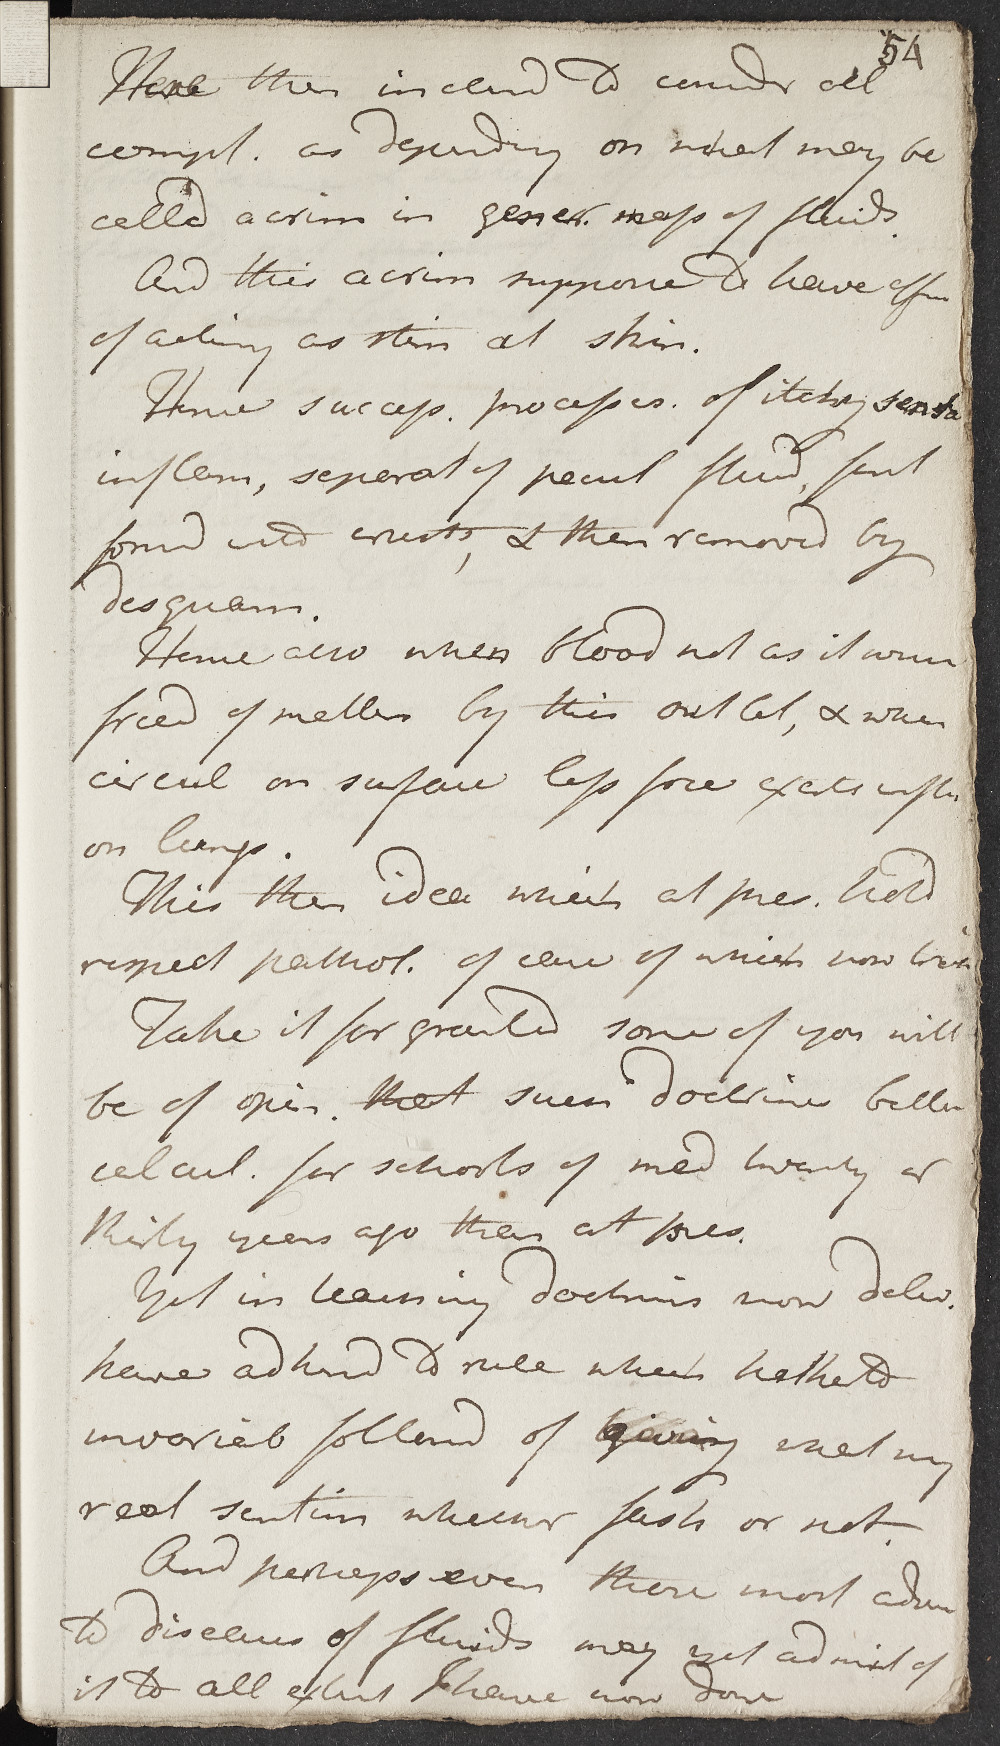 54
Here then inclend to consedr all
compl. as dependiny on what may be
called acrim in gener. mass of fluids.
And this acrim suppose to have effn
of acting as stim at skin.
Hence success. processes. of itchy sensa
inflam, separat of pecul fluid, fend
formd into crusts, & then removed by
desquam.
Hence also when blood not as it were
freed of matter by this outlet, & when
circul on surface less free exerts influ
on lungs.
This then idea which at pres. hold
respect pathol. of case of which now
Take it for granted some of you will
be of opin. that such doctrine better
calcul. for schools of med twenty or
thirty years ago than at pres.
Yet in teaching doctrines now deliv.
have adherd to rule which hitherto
invariab followd of giving what my
real sentim whether fash or not.
And perhaps even those most advers
to diseases of fluids may yet admit of
it to all extent I have now done